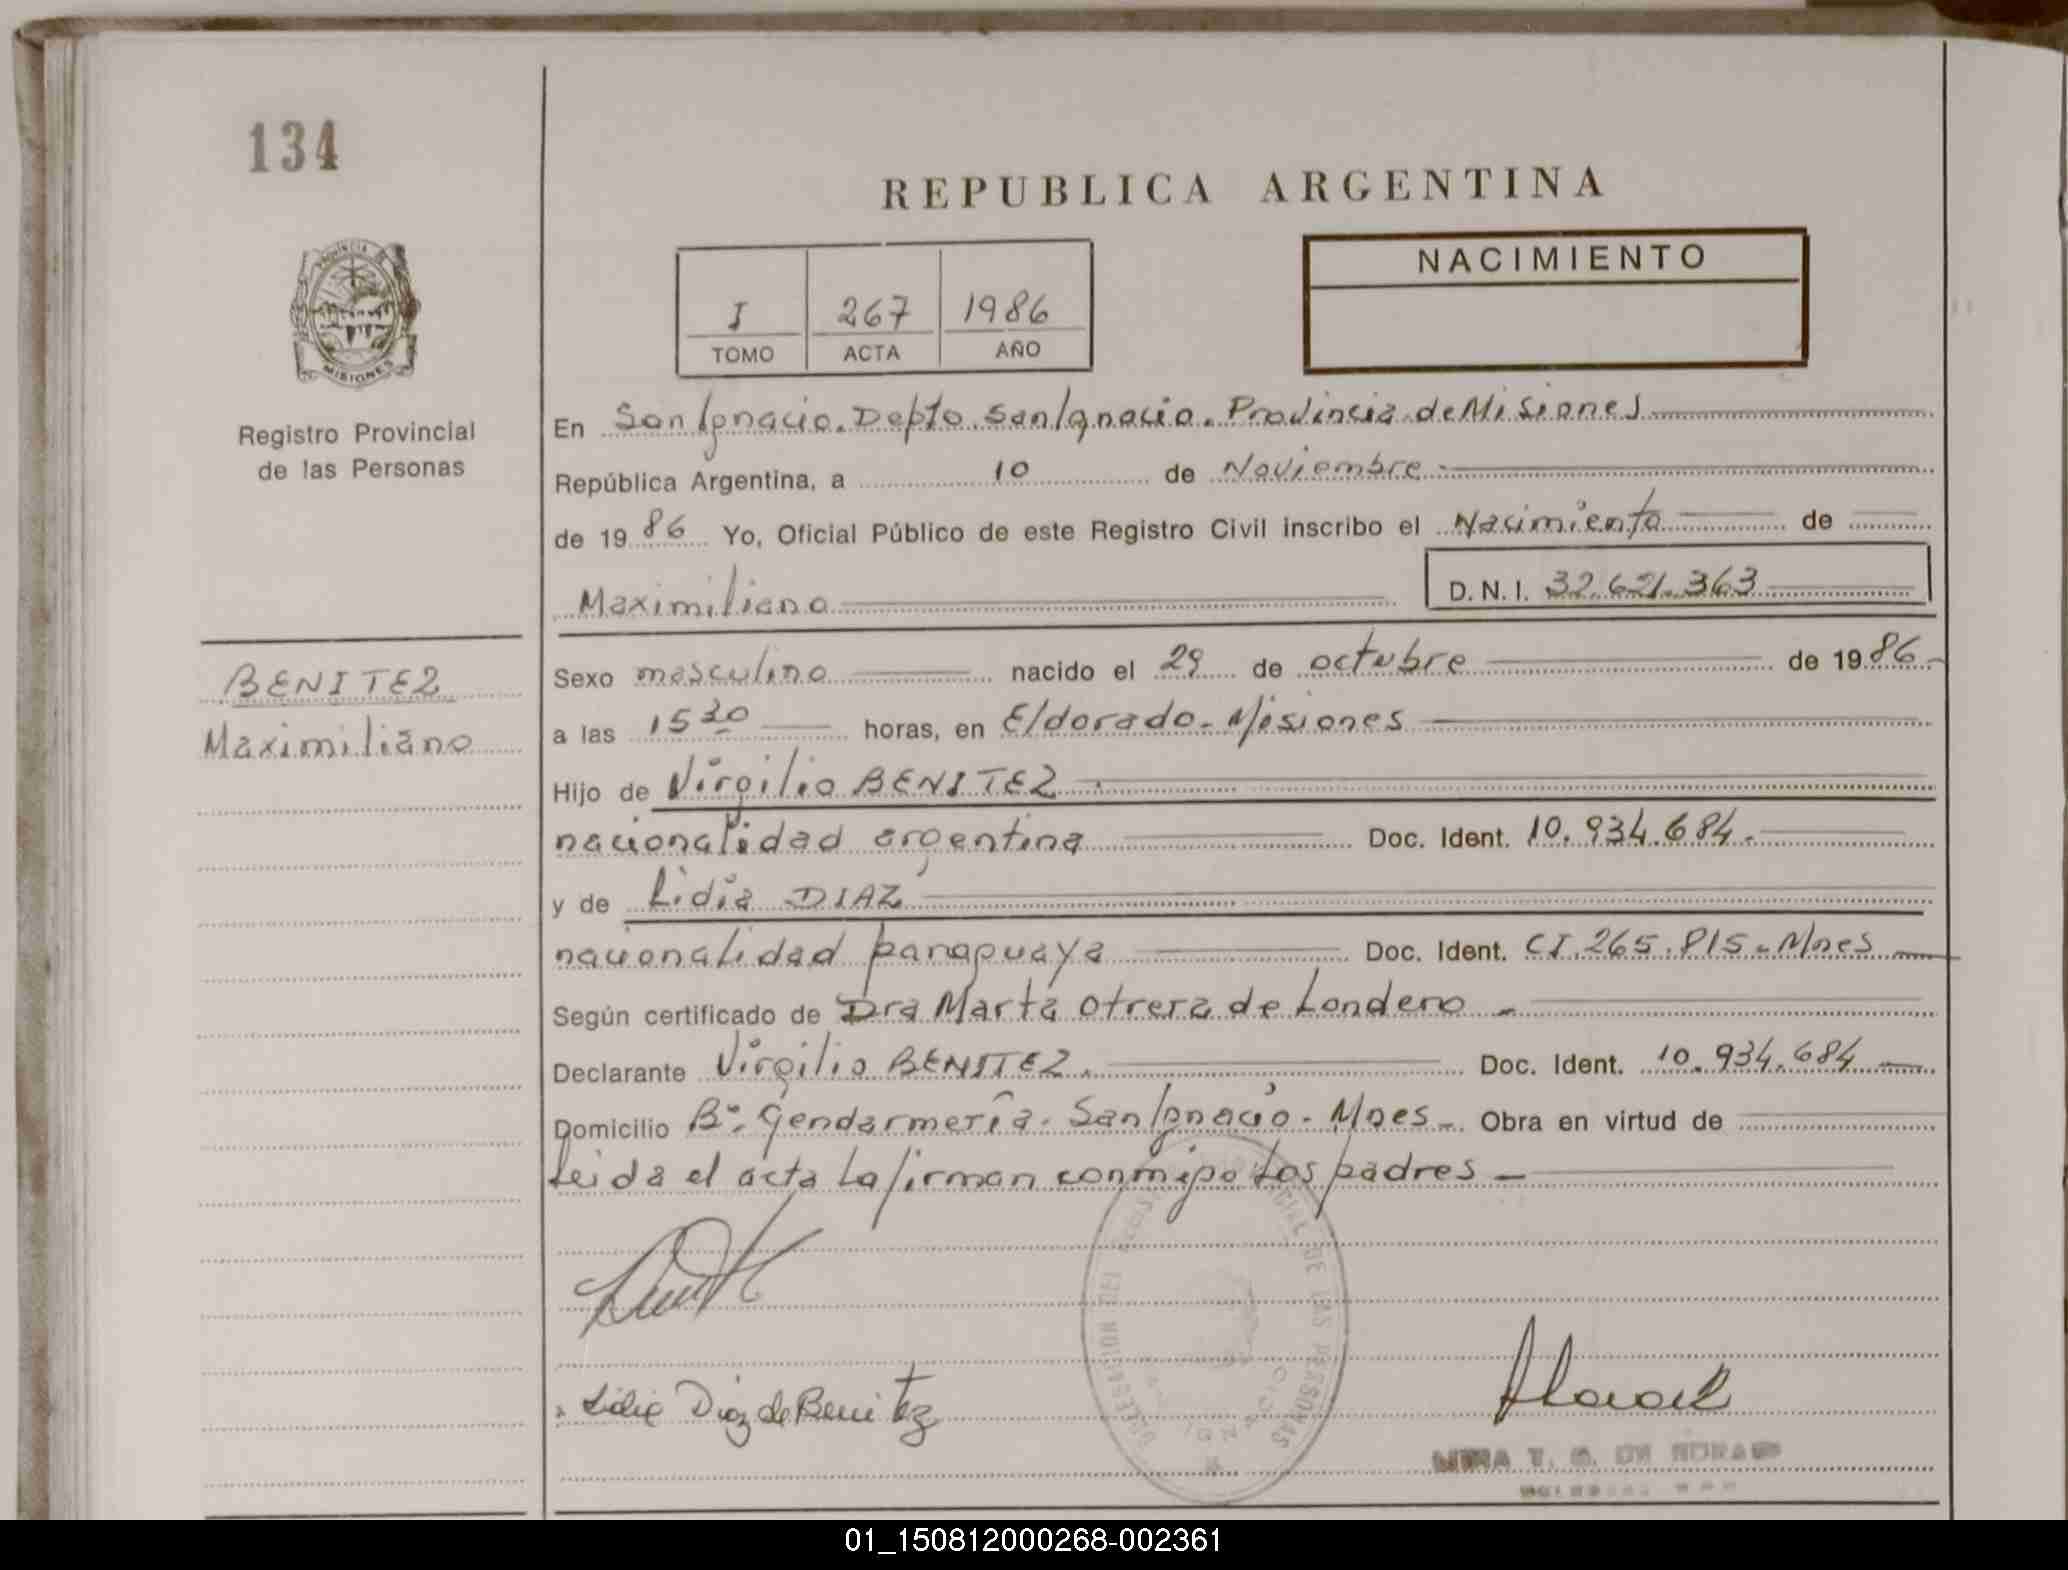 134
PROVINCIA
MISIONES
Registro Provincial
de las Personas
BENITEZ
Maximiliano
REPUBLICA ARGENTINA
I 267 1986
TOMO ACTA AÑO
NACIMIENTO
En San Ignacio. Depto. San Ignacio. Provincia de Misiones
República Argentina, a 10 de Noviembre
de 1986 Yo, Oficial Público de este Registro Civil inscribo el Nacimiento de
Maximiliano D.N.I. 32.621.363
Sexo masculino nacido el 29 de octubre de 1986
a las 15 30 horas, en Eldorado - Misiones
Hijo de Virgilio BENITEZ
nacionalidad argentina Doc. Ident. 10.934.684.
y de Lidia DIAZ
nacionalidad paraguaya Doc. Ident. CI.265.815 - Mnes
Según certificado de Dra Marta Otrera de Londero -
Declarante Virgilio BENITEZ. Doc. Ident. 10.934.684
Domicilio Bº: Gendarmería. San Ignacio - Mnes - Obra en virtud de
Leida el acta la firman conmigo los padres -
DELEGACION DEL PROVINCIAL DE LAS PERSONAS
Lidia Diaz de Benitez
T. DE
01_150812000268-002361